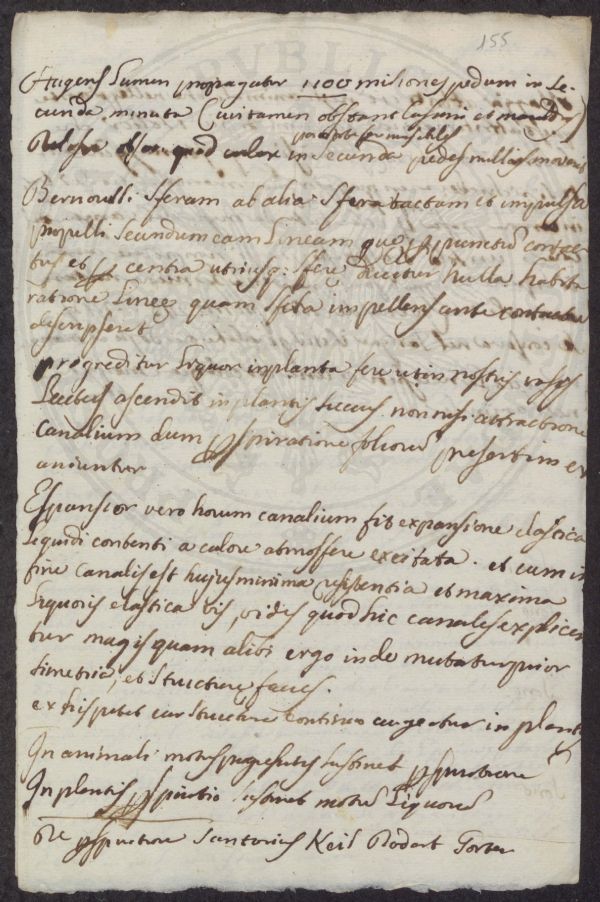 155
Hugens Lumen propagatur 1100 miliones pedum in se-
cunda minuta (cui tamen obstant Cassini et
obser. quod calor in secunda pedes
Bernoulli. Sferam ab alia sfera tactam et impulsa
propelli secundum eam Lineam que p punctū contac
tus et centra utriusq: sferę ducitur nulla habita
ratione Lineę quam sfera impellens ante contactum
descripserit
progreditur Liquor in planta fere uti in nostris vasis
ascendit in plantis succus non nisi attractione
canalium dum pspiratione foliorū presertim ex
aniuntur
Espansior vero horum canalium fit expansione elastica
Liquidi contenti a calore atmosfere excitata. et cum in
fine canalis est hujus minima resistentia et maxima
Liquoris elastica vis, vides quod hic canales explican
tur magis quam alibi ergo inde mutatur
simetria, et structure facies.
ex his patet cur structura continuo augeatur in plantis
In animali motus progressivus sustinet pspirationē
In plantis pspiratio sustinet motū Liquorū
De pspiratione Santorius Keil Dodart Gorter